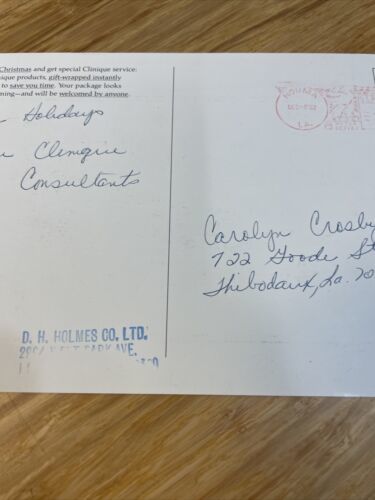 Christmas and get special Clinique service:
ique products, gift-wrapped instantly
to save you time. Your package looks
ming—and will be welcomed by anyone.
Holidays
Clinique
Consultants
D. H. HOLMES CO. LTD.
PARK AVE.
HOUMA
LA.
Carolyn Crosby
722 Goode St
Thibodaux, La. 70